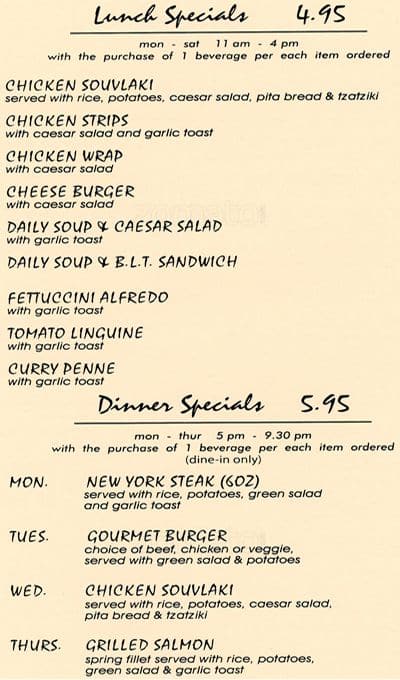 Lunch Specials 4.95
mon - sat 11 am - 4 pm
with the purchase of 1 beverage per each item ordered
CHICKEN SOUVLAKI
served with rice, potatoes, caesar salad, pita bread & tzatziki
CHICKEN STRIPS
with caesar salad and garlic toast
CHICKEN WRAP
with caesar salad
CHEESE BURGER
with caesar salad
DAILY SOUP & CAESAR SALAD
with garlic toast
DAILY SOUP & B.L.T. SANDWICH
FETTUCCINI ALFREDO
with garlic toast
TOMATO LINGUINE
with garlic toast
CURRY PENNE
with garlic toast
Dinner Specials 5.95
mon - thur 5 pm - 9.30 pm
with the purchase of 1 beverage per each item ordered
(dine-in only)
MON. NEW YORK STEAK (6OZ)
served with rice, potatoes, green salad
and garlic toast
TUES. GOURMET BURGER
choice of beef, chicken or veggie,
served with green salad & potatoes
WED. CHICKEN SOUVLAKI
served with rice, potatoes, caesar salad,
pita bread & tzatziki
THURS. GRILLED SALMON
spring fillet served with rice, potatoes,
green salad & garlic toast